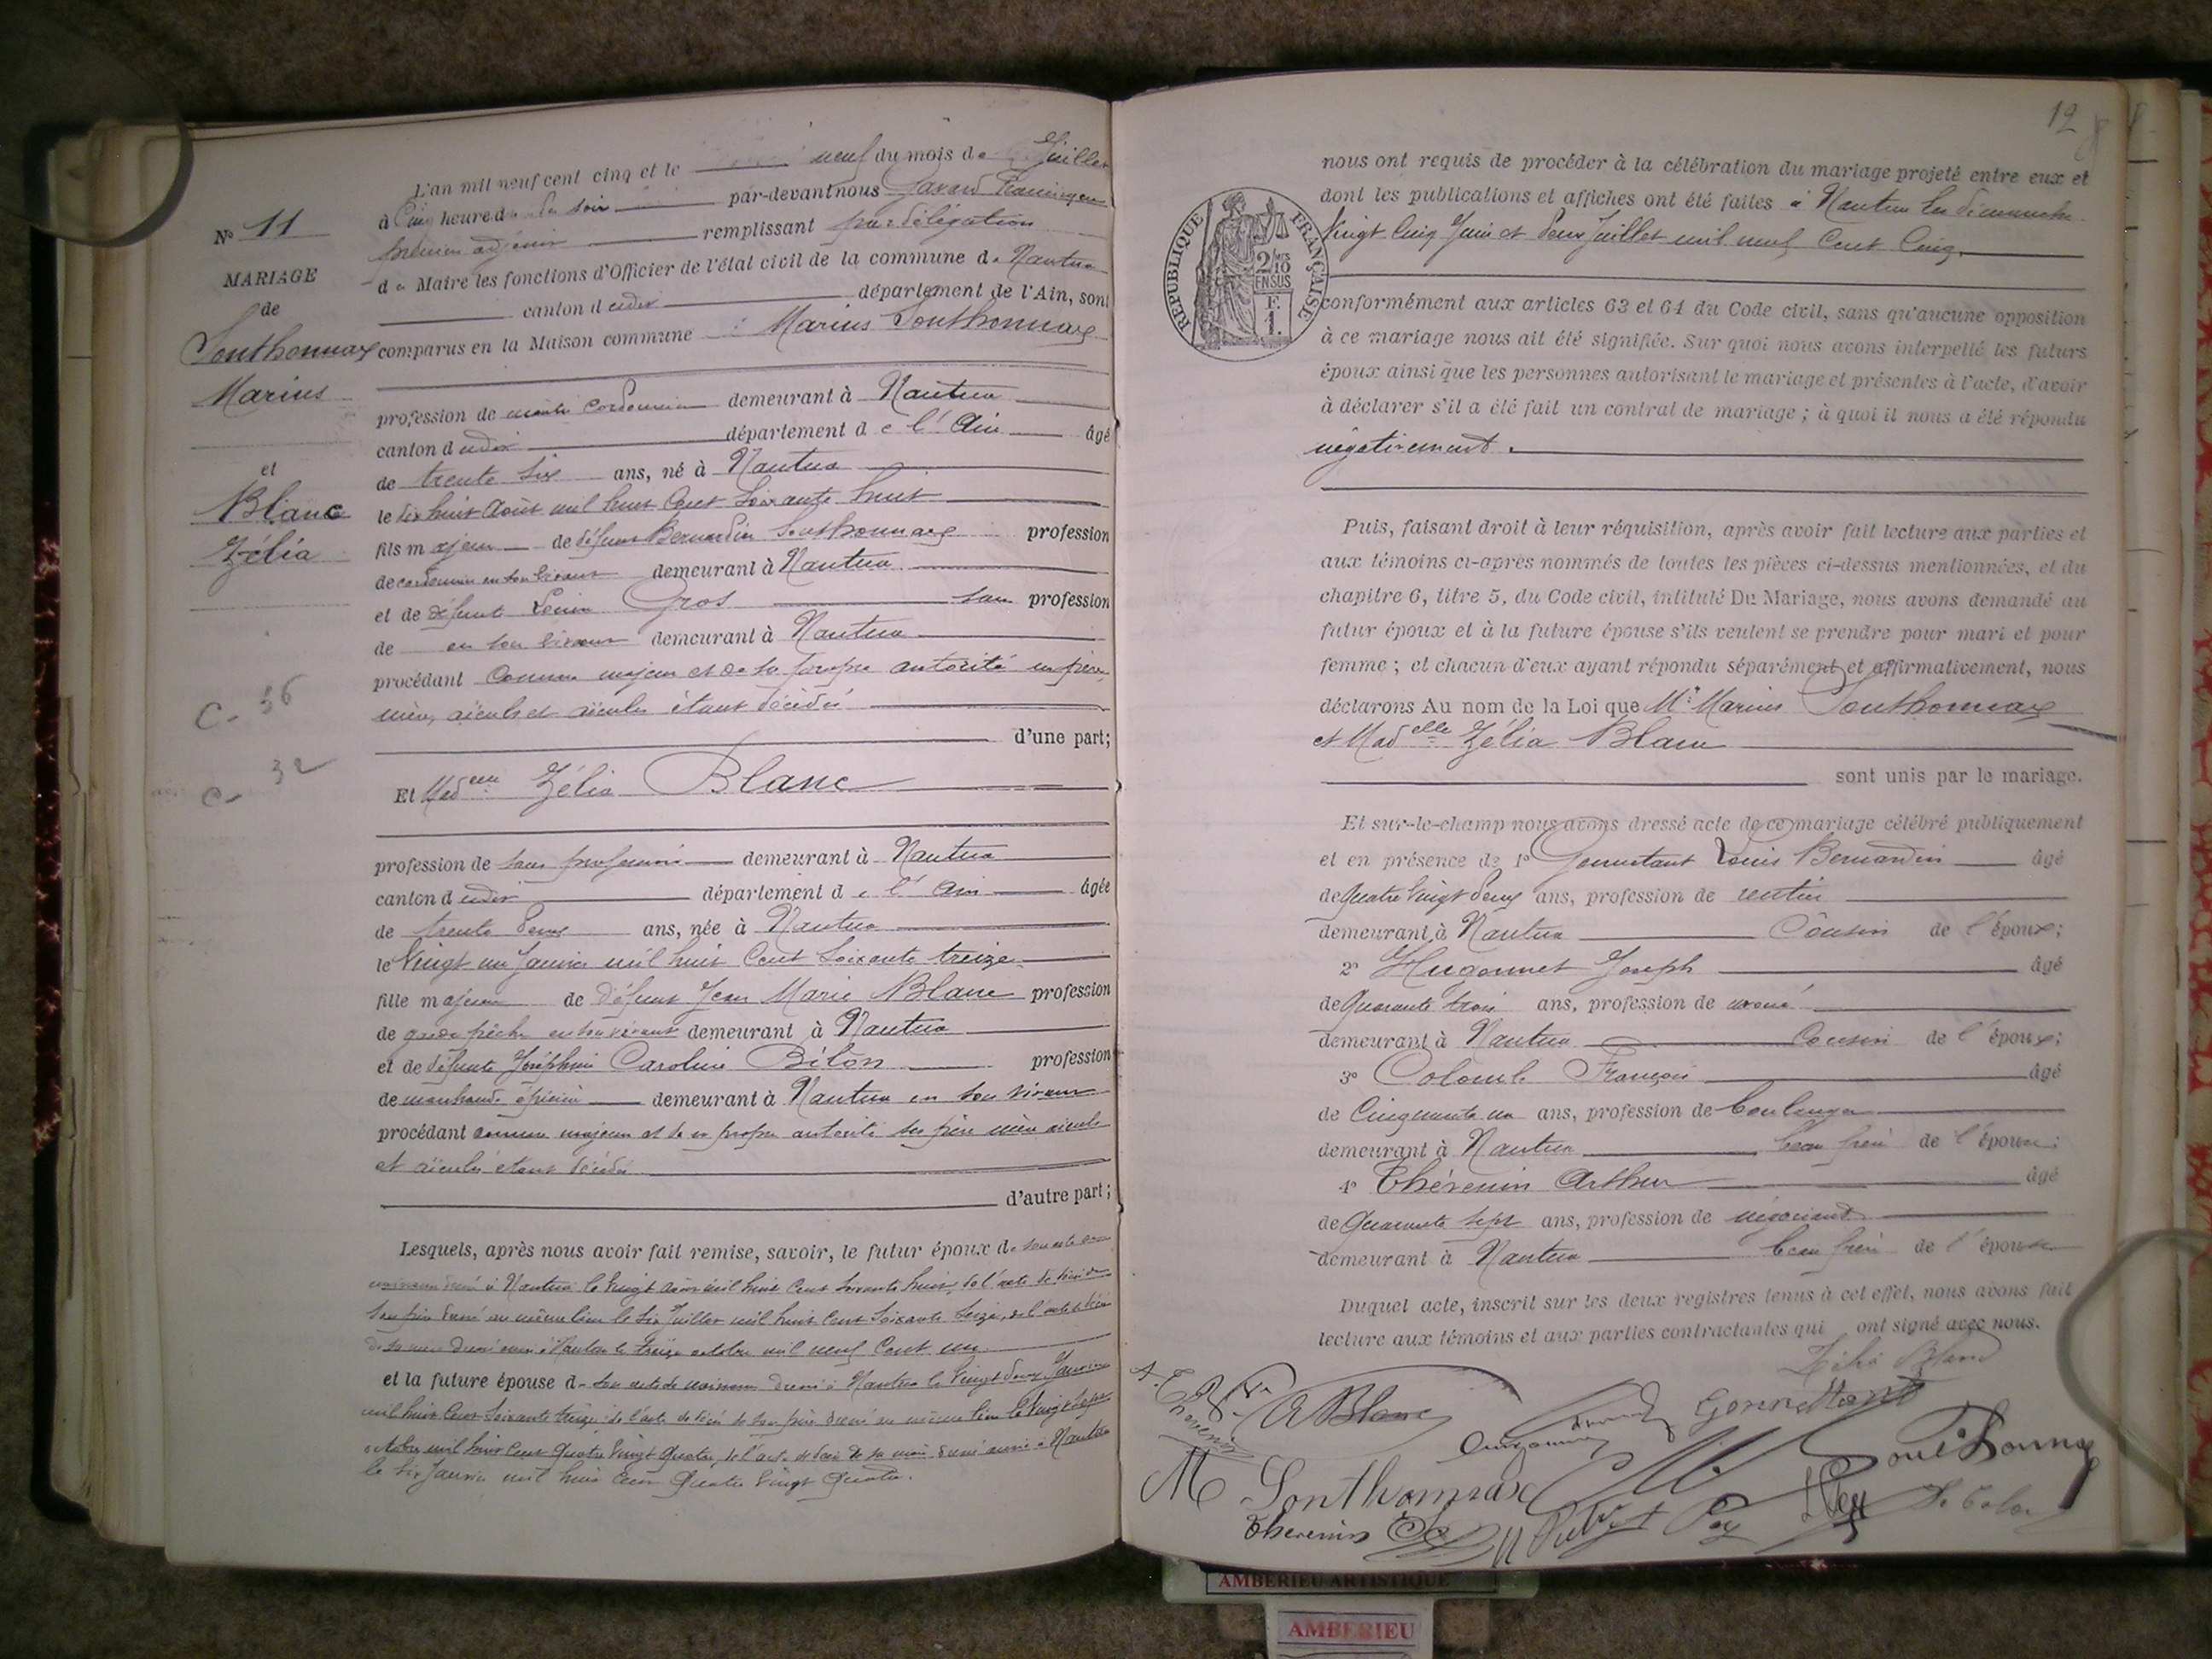 N° 11
MARIAGE
de
Southonnax
Marius
et
Blanc
Zélia
C- 36
C- 32
L'an mil neuf cent cinq et le neuf du mois de Juillet
à Cinq heure d du soir par-devant nous Savard
premier adjoint remplissant par délégation
de Maire les fonctions d'Officier de l'état civil de la commune de Nantua
canton dudit département de l'Ain, sont
comparus en la Maison commune : Marius Southonnax
profession de maître Cordonnier demeurant à Nantua
canton dudit département de l'Ain âgé
de trente six ans, né à Nantua
le dix huit Août mil huit Cent Soixante huit
fils majeur de défunt Bernardin Southonnax profession
de cordonnier en son vivant demeurant à Nantua
et de défunte Gros sans profession
de en son vivant demeurant à Nantua
procédant Comme majeur et de sa propre autorité ses père,
mère, aïeuls et aïeules étant décédés
d'une part;
Et Mad elle Zélia Blanc
profession de sans profession demeurant à Nantua
canton dudit département de l'Ain âgée
de trente deux ans, née à Nantua
le Vingt un Janvier mil huit Cent Soixante treize
fille majeure de défunt Jean Marie Blanc profession
de garde pêche en son vivant demeurant à Nantua
et de défunte Joséphine Caroline Bilon profession
de marchande épicière demeurant à Nantua en son vivant
procédant comme majeure et de sa propre autorité ses père mère aïeuls
et aïeules étant décédés
d'autre part;
Lesquels, après nous avoir fait remise, savoir, le futur époux de son acte de
naissance dressé à Nantua le Vingt Août mil huit Cent Soixante huit, de l'acte de décès de
son père dressé au même lieu le six Juillet mil huit Cent Soixante Seize, de l'acte de décès
de sa mère dressé à Nantua le treize octobre mil neuf Cent un
et la future épouse d- son acte de naissance dressé à Nantua le Vingt deux Janvier
mil huit Cent Soixante treize, de l'acte de décès de son père dressé au même lieu le Vingt Sept
octobre mil huit Cent Quatre Vingt Quatre, de l'acte de décès de sa mère dressé aussi à Nantua
le six Janvier mil huit Cent Quatre Vingt Quatre.
12
RÉPUBLIQUE FRANÇAISE
2/10 EN SUS
F. 1.
nous ont requis de procéder à la célébration du mariage projeté entre eux et
dont les publications et affiches ont été faites à Nantua les dimanche
Vingt Cinq Juin et deux Juillet mil neuf Cent Cinq.
conformément aux articles 63 et 64 du Code civil, sans qu'aucune opposition
à ce mariage nous ait été signifiée. Sur quoi nous avons interpellé les futurs
époux ainsi que les personnes autorisant le mariage et présentes à l'acte, d'avoir
à déclarer s'il a été fait un contrat de mariage ; à quoi il nous a été répondu
négativement.
Puis, faisant droit à leur réquisition, après avoir fait lecture aux parties et
aux témoins ci-après nommés de toutes les pièces ci-dessus mentionnées, et du
chapitre 6, titre 5, du Code civil, intitulé Du Mariage, nous avons demandé au
futur époux et à la future épouse s'ils veulent se prendre pour mari et pour
femme ; et chacun d'eux ayant répondu séparément et affirmativement, nous
déclarons Au nom de la Loi que Mr Marius Southonnax
et Mad elle Zélia Blanc
sont unis par le mariage.
Et sur-le-champ nous avons dressé acte de ce mariage célébré publiquement
et en présence de 1° Gonnetant Louis Bernardin âgé
de Quatre Vingt deux ans, profession de rentier
demeurant à Nantua Cousin de l'époux;
2° Hugonnet Joseph âgé
de Quarante trois ans, profession de avoué
demeurant à Nantua Cousin de l'époux;
3° Colomb François âgé
de Cinquante un ans, profession de boulanger
demeurant à Nantua beau frère de l'épouse;
4° Thévenin Arthur âgé
de Quarante sept ans, profession de négociant
demeurant à Nantua beau frère de l'épouse
Duquel acte, inscrit sur les deux registres tenus à cet effet, nous avons fait
lecture aux témoins et aux parties contractantes qui ont signé avec nous.
Zélia Blanc
A. Blanc
Gonnettant
M Southonnax
Thevenin
AMBERIEU ARTISTIQUE
AMBERIEU